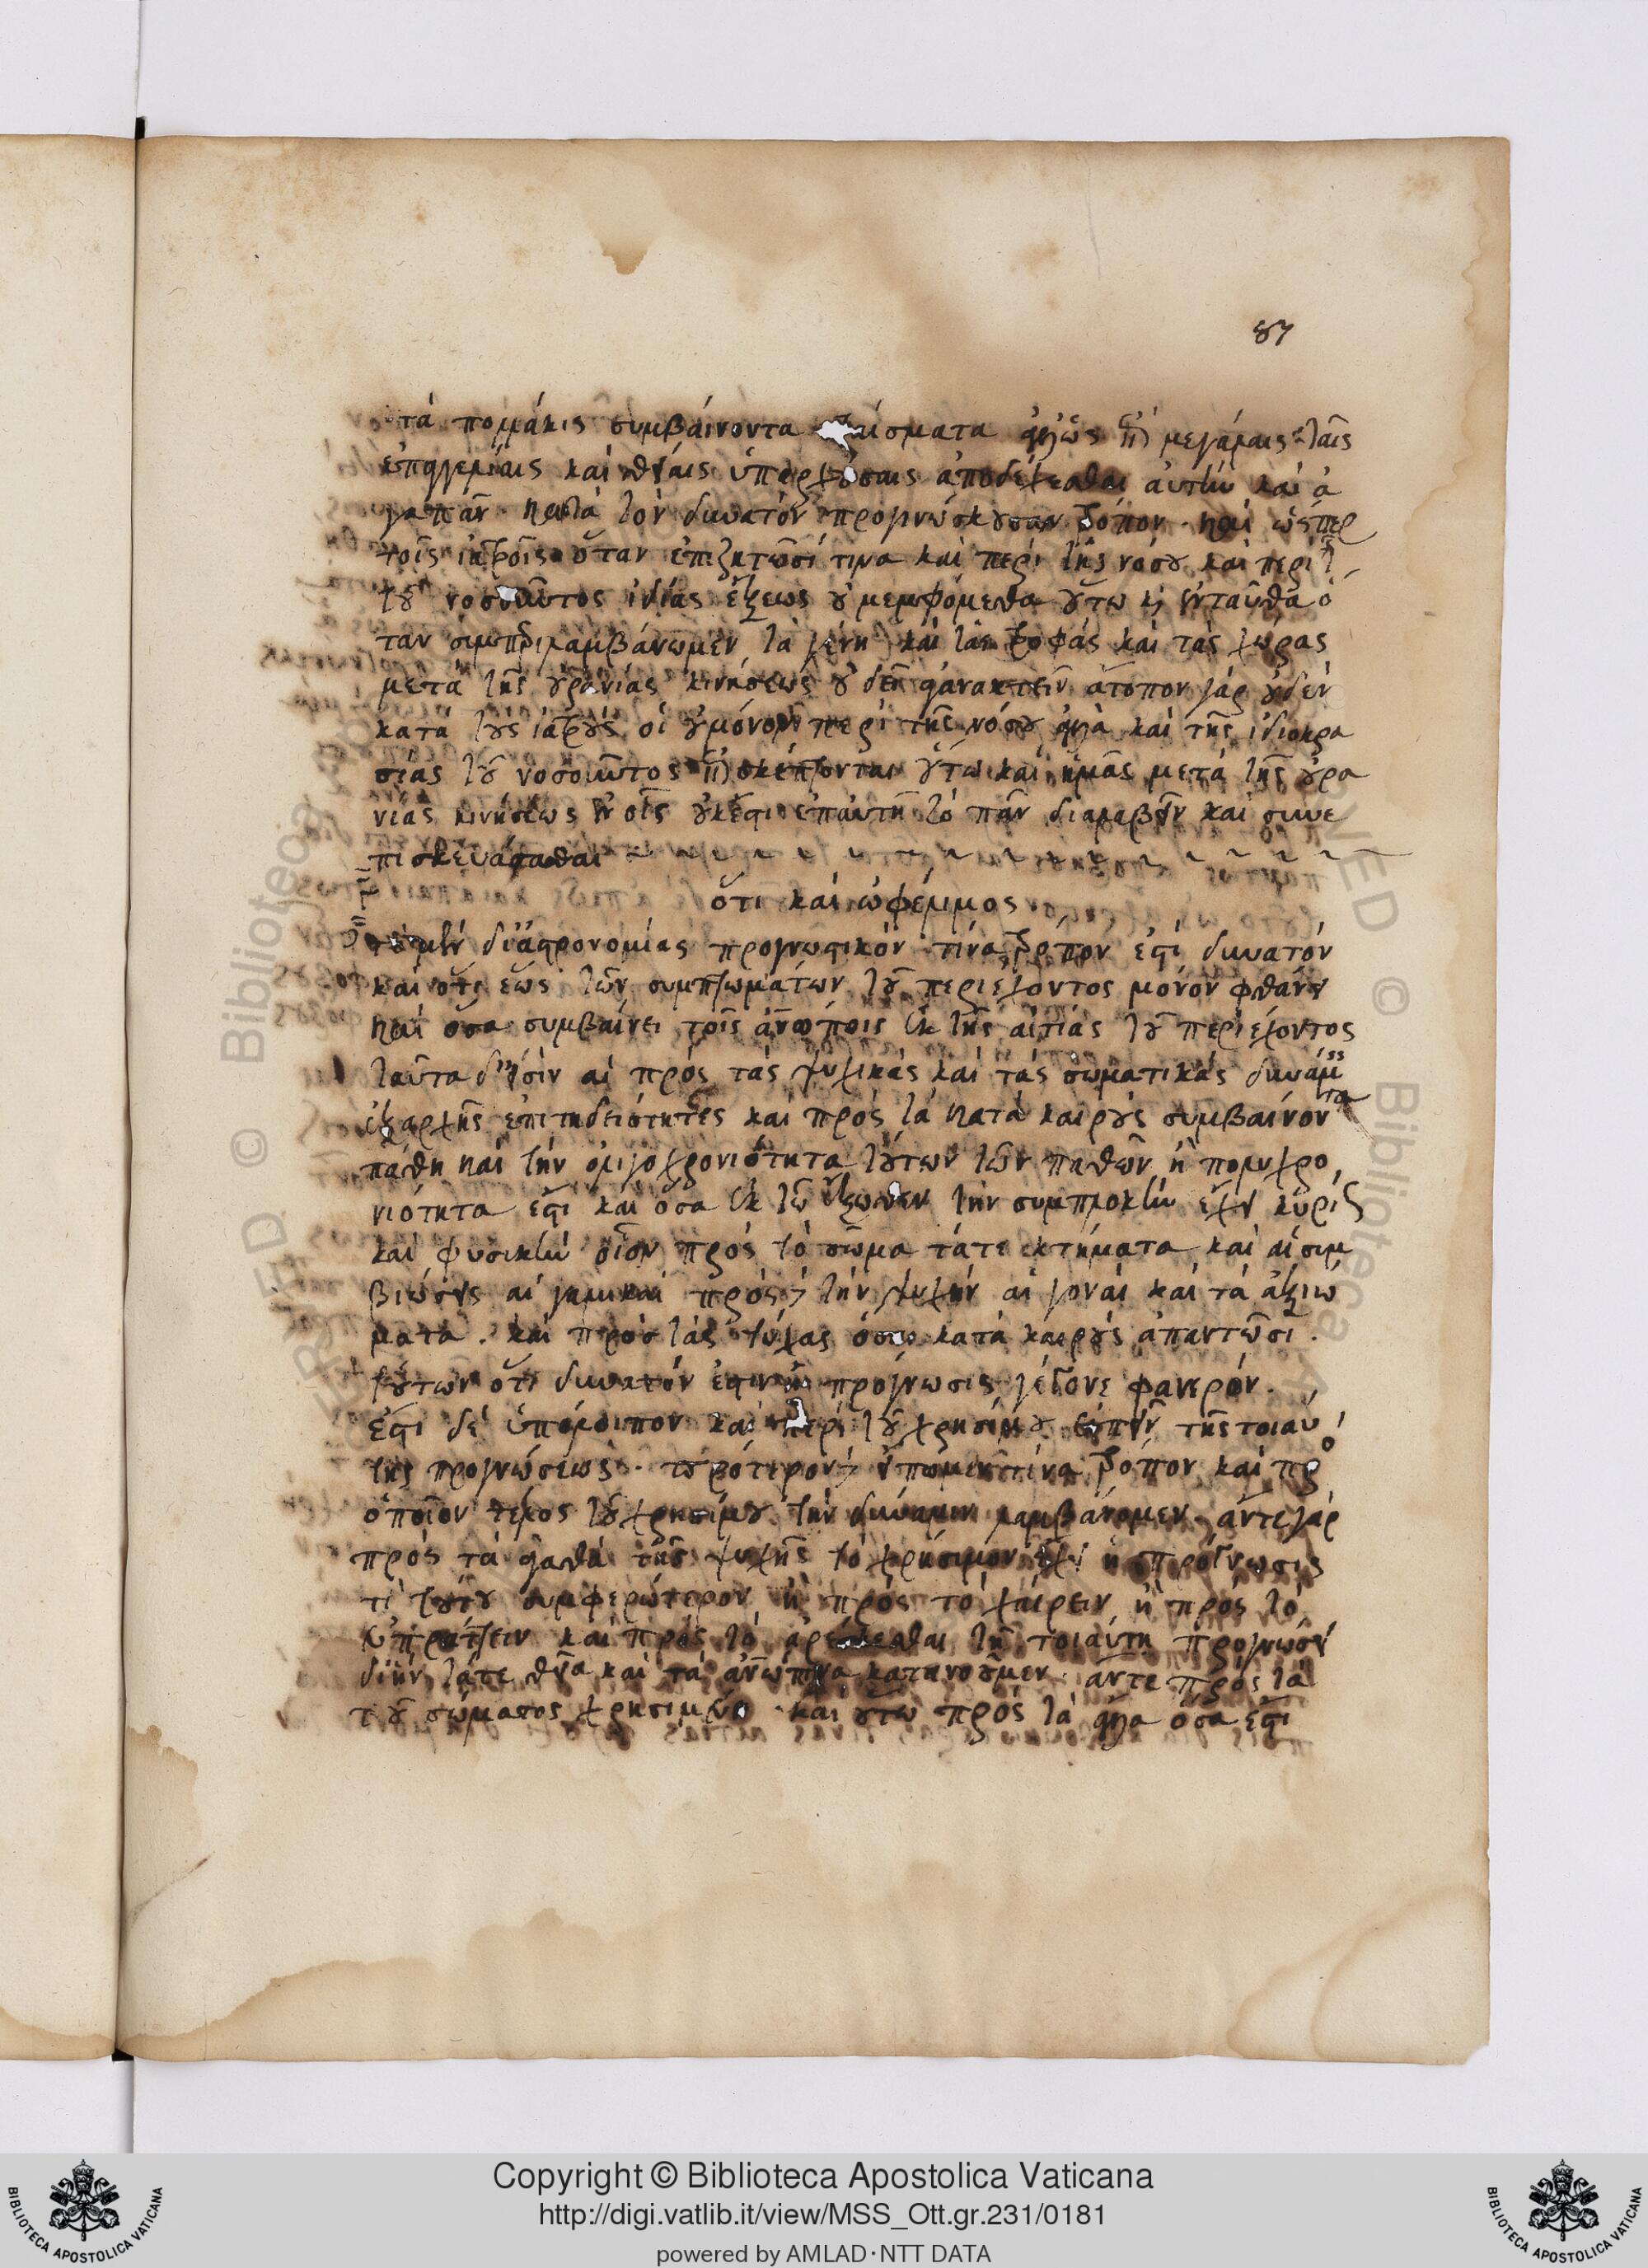 87
τὰ πολλάκις συμβαίνοντα πταίσματα ἄλλως ἐπὶ μεγάλαις ταῖς
ἐπαγγελίαις καὶ θείαις ὑπαρχούσαις ἀποδέχεσθαι αὐτὴν καὶ ἀ
γαπᾶν κατὰ τὸν δυνατὸν προγινώσκουσαν τρόπον. καὶ ὥσπερ
τοῖς ἰατροῖς ὅταν ἐπιζητῶσί τινα καὶ περὶ τῆς νόσου καὶ περὶ τῆς
τοῦ νοσοῦντος ἰδίας ἕξεως οὐ μεμφόμεθα οὕτω καὶ ἐνταῦθα ὅ
ταν συμπεριλαμβάνωμεν τὰ γένη καὶ τὰς τροφὰς καὶ τὰς χώρας
μετὰ τῆς οὐρανίας κινήσεως οὐ δεῖ ἀγανακτεῖν ἄτοπον γὰρ οὐδέν
κατὰ τοὺς ἰατροὺς οἳ οὐ μόνον περὶ τῆς νόσου ἀλλὰ καὶ τῆς ἰδιοκρα
σίας τοῦ νοσοῦντος ἐπισκέπτονται οὕτω καὶ ἡμᾶς μετὰ τῆς οὐρα
νίας κινήσεως ἐν οἷς οὐκ ἔστι ἐπ' αὐτῇ τὸ πᾶν διαλαβεῖν καὶ συνε
πισκευάσασθαι
ὅτι καὶ ὠφέλιμος
μὲν δι' ἀστρονομίας προγνωστικὸν τίνα τρόπον ἐστὶ δυνατόν
καὶ ὅτι ἕως τῶν συμπτωμάτων τοῦ περιέχοντος μόνον φθάνει
καὶ ὅσα συμβαίνει τοῖς ἀνθρώποις ἐκ τῆς αἰτίας τοῦ περιέχοντος
ταῦτα δ' εἰσὶν αἱ πρὸς τὰς ψυχικὰς καὶ τὰς σωματικὰς δυνάμεις
ἐξ ἀρχῆς ἐπιτηδειότητες καὶ πρὸς τὰ κατὰ καιροὺς συμβαίνοντα
πάθη καὶ τὴν ὀλιγοχρονιότητα τούτων τῶν παθῶν ἢ πολυχρο
νιότητα ἔτι καὶ ὅσα ἐκ τῶν ἔξωθεν τὴν συμπλοκὴν ἔχει κυρίαν
καὶ φυσικὴν οἷον πρὸς τὸ σῶμα τά τε κτήματα καὶ αἱ συμ
βιώσεις αἱ γαμικαὶ πρὸς δὲ τὴν ψυχὴν αἱ γοναὶ καὶ τὰ ἀξιώ
ματα. καὶ πρὸς τὰς τύχας ὅσα κατὰ καιροὺς ἀπαντῶσι.
τούτων ὅτι δυνατόν ἐστιν ἡ πρόγνωσις γέγονε φανερόν.
ἔστι δὲ ὑπόλοιπον καὶ περὶ τοῦ χρησίμου εἰπεῖν τῆς τοιαύ
της προγνώσεως. πρότερον δὲ εἴπωμεν τίνα τρόπον καὶ πρὸς
ὁποῖον τέλος τοῦ χρησίμου τὴν δύναμιν λαμβάνομεν. ἄν τε γὰρ
πρὸς τὰ ἀγαθὰ τῆς ψυχῆς τὸ χρήσιμον ἔχει ἡ πρόγνωσις
τί τούτου συμφερώτερον ἢ πρὸς τὸ χαίρειν ἢ πρὸς τὸ
εὖ πράττειν καὶ πρὸς τὸ ἀρέσκεσθαι τῇ τοιαύτῃ προγνώσει
δι' ἣν τά τε θεῖα καὶ τὰ ἀνθρώπινα κατανοοῦμεν. ἄν τε πρὸς τὰ
τοῦ σώματος χρησιμεύει. καὶ οὕτω πρὸς τὰ ἄλλα ὅσα ἐστὶ
Copyright © Biblioteca Apostolica Vaticana
http://digi.vatlib.it/view/MSS_Ott.gr.231/0181
powered by AMLAD·NTT DATA
BIBLIOTECA APOSTOLICA VATICANA
BIBLIOTECA APOSTOLICA VATICANA